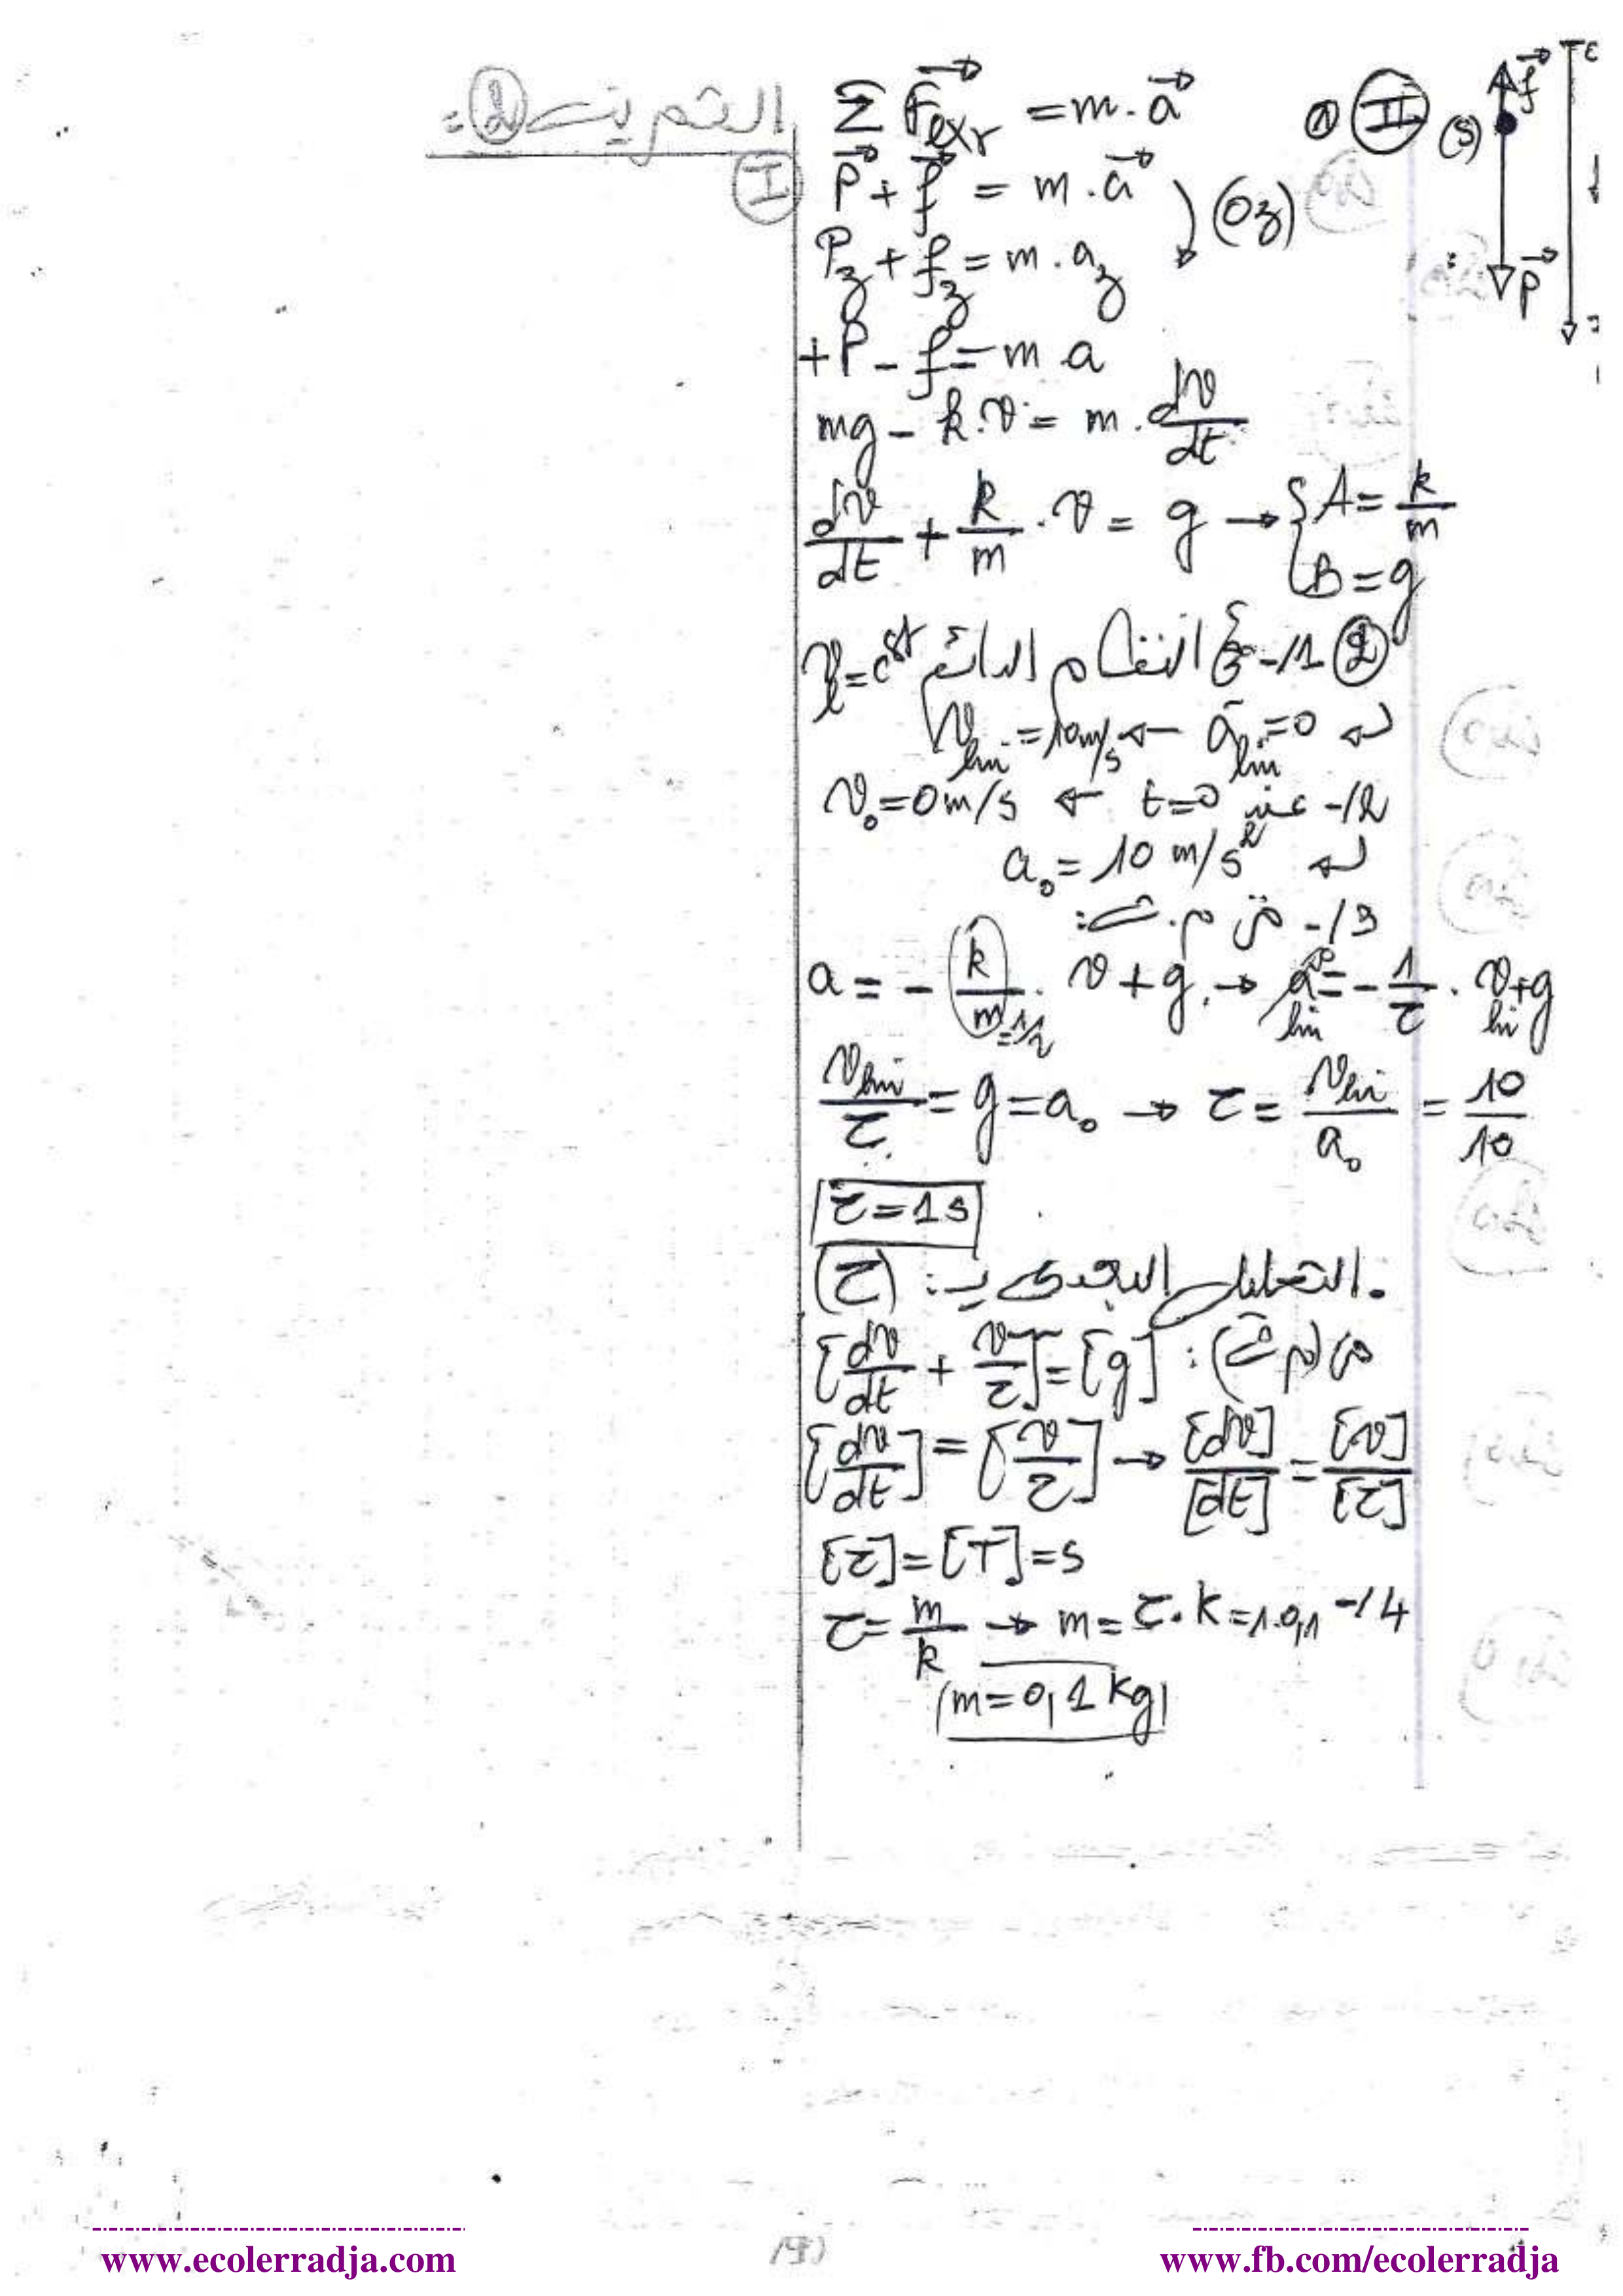 التمرين ②:
Ⅰ
① Ⅱ
(S)
f
P
Σ F_ext = m . a
P + f = m . a
(Oz)
P_z + f_z = m . a_z
+P - f = m a
mg - k.v = m . dv/dt
dv/dt + k/m . v = g → { A = k/m
B = g
② 1/- في النظام الدائم v_l = c^st
a_lim = 0 ← v_lim = 10 m/s
2/- عند t=0 ← v₀ = 0 m/s
a₀ = 10 m/s²
3/- من م.ت:
a = - k/m . v + g → a_lim = - 1/τ . v_lim + g
= 1/τ
v_lim/τ = g = a₀ → τ = v_lim/a₀ = 10/10
τ = 1 s
. التحليل البعدي لـ: (τ)
من (م ت): [dv/dt + v/τ] = [g]
[dv/dt] = [v/τ] → [dv]/[dt] = [v]/[τ]
[τ] = [T] = s
4/- τ = m/k → m = τ . k = 1.0,1
m = 0,1 kg
www.ecolerradja.com
www.fb.com/ecolerradja